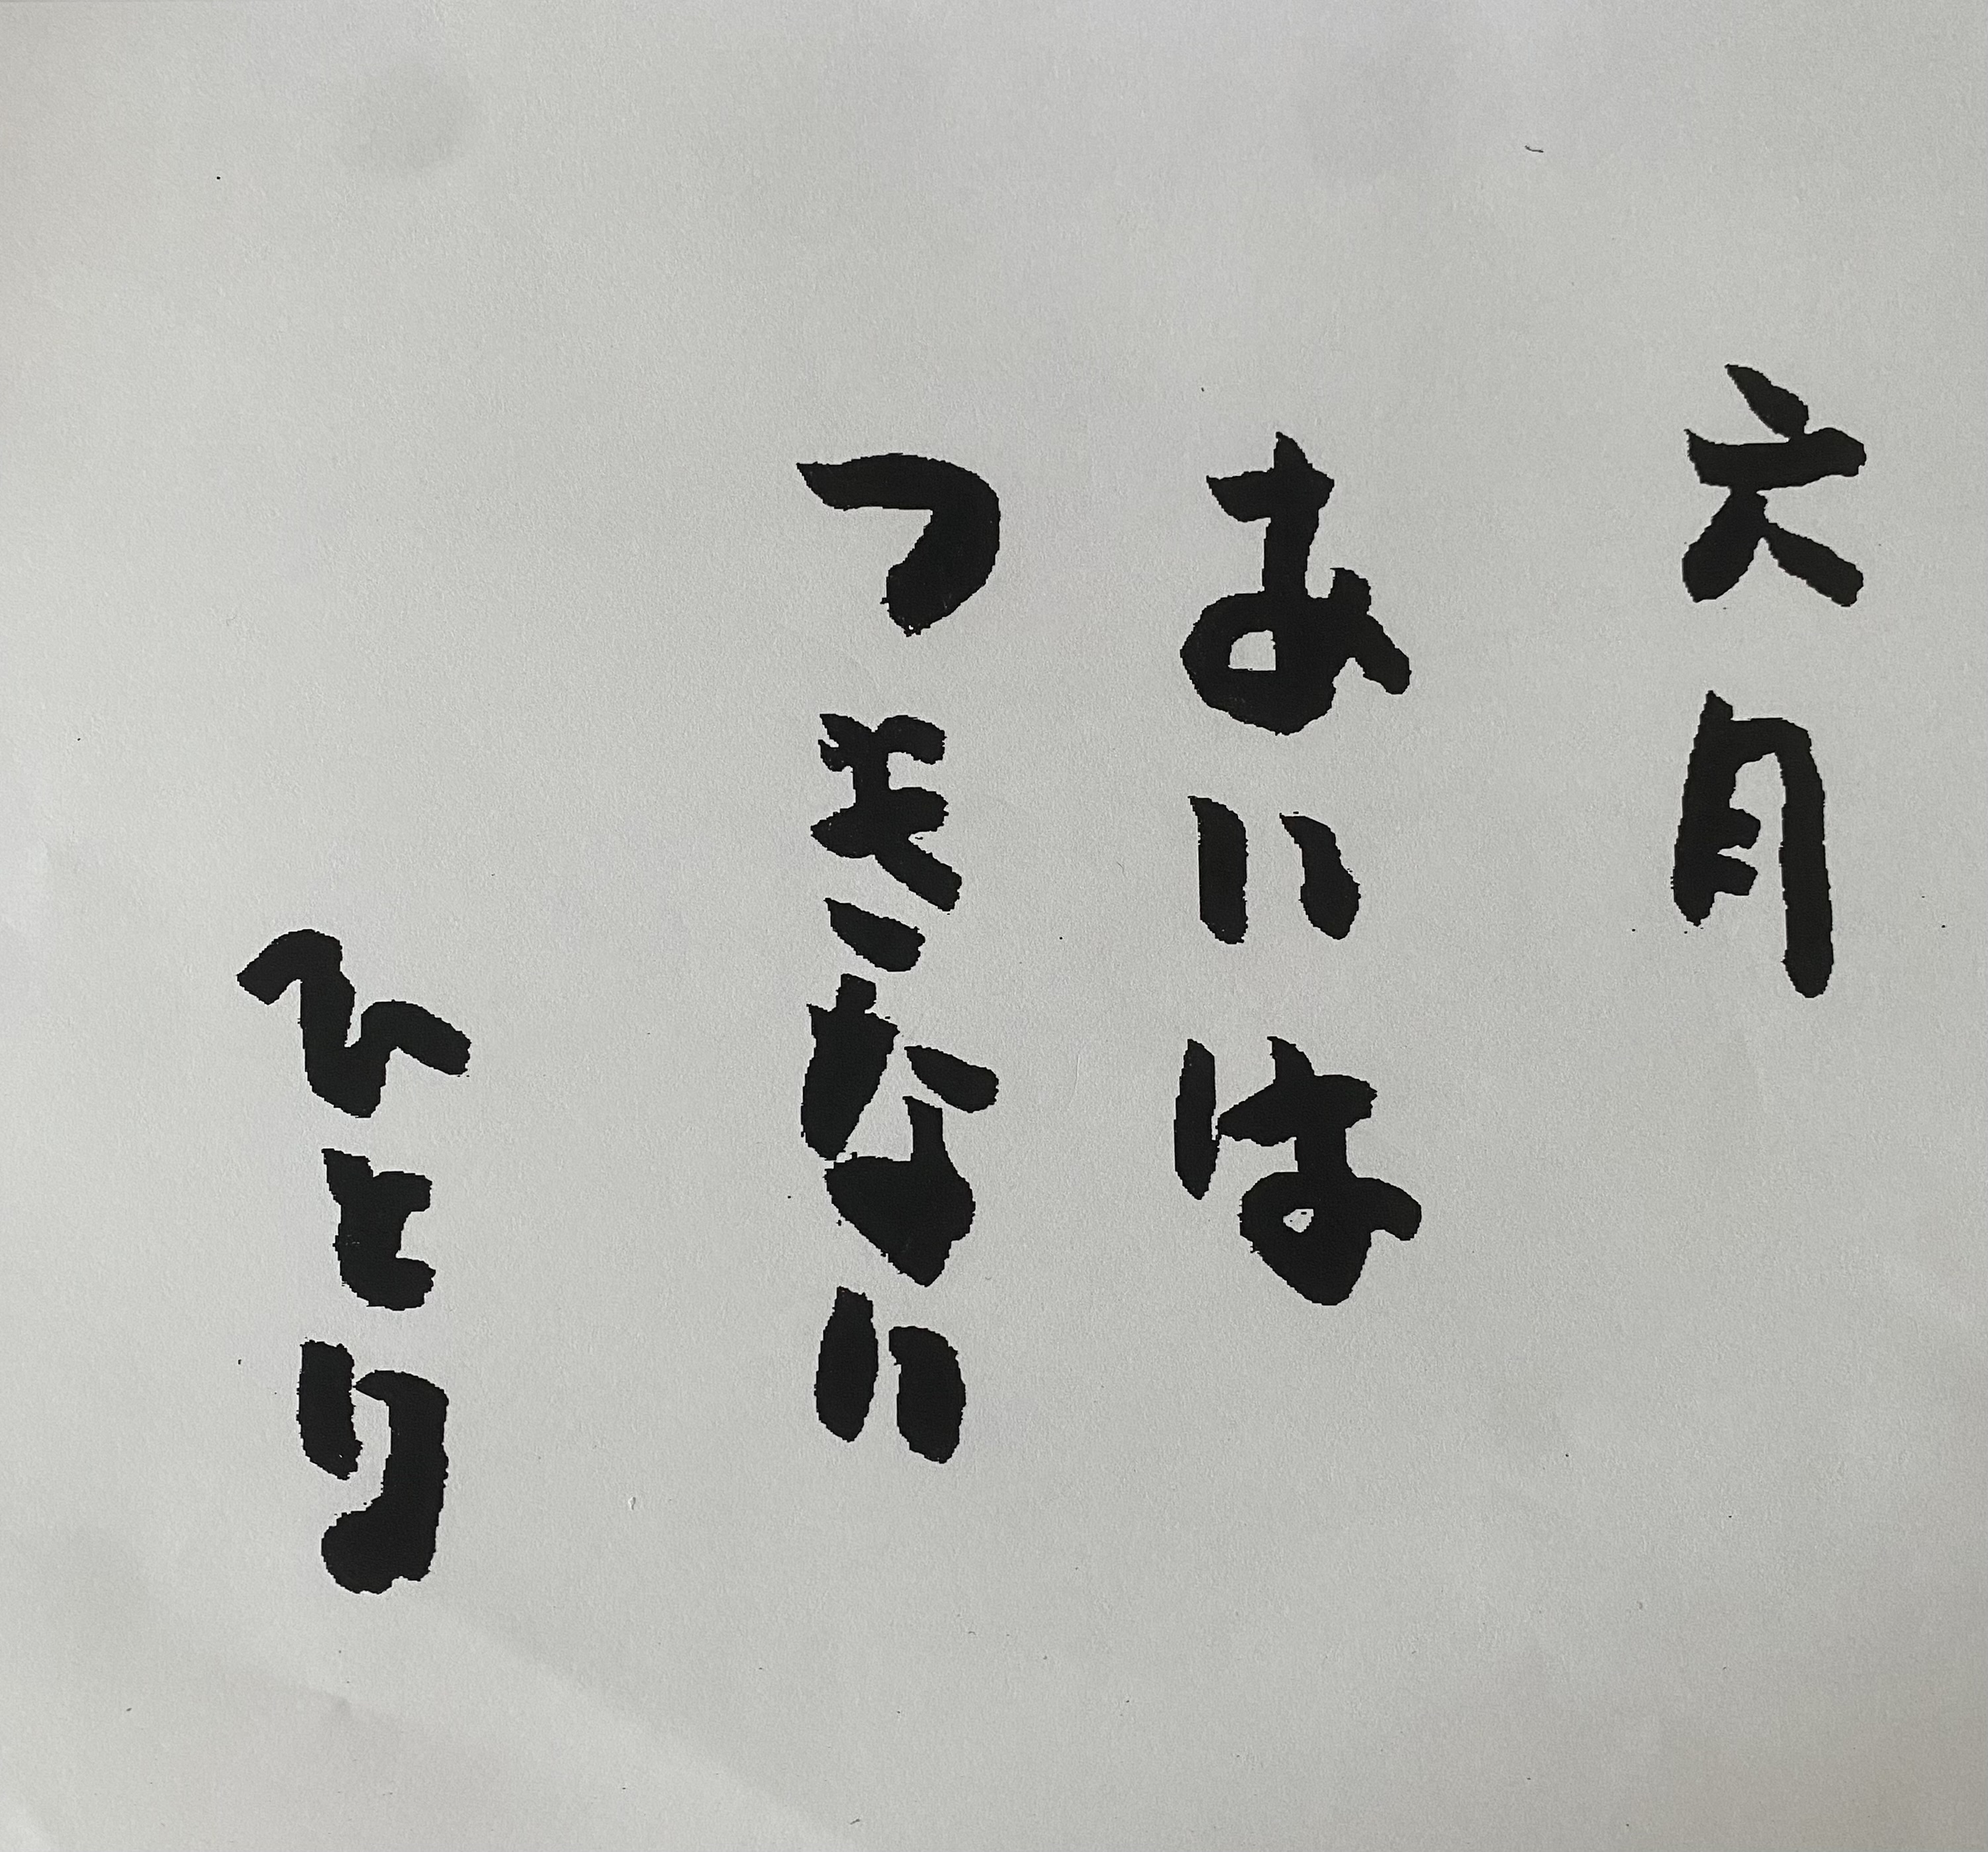 六月
あいは
つきない
ひとり